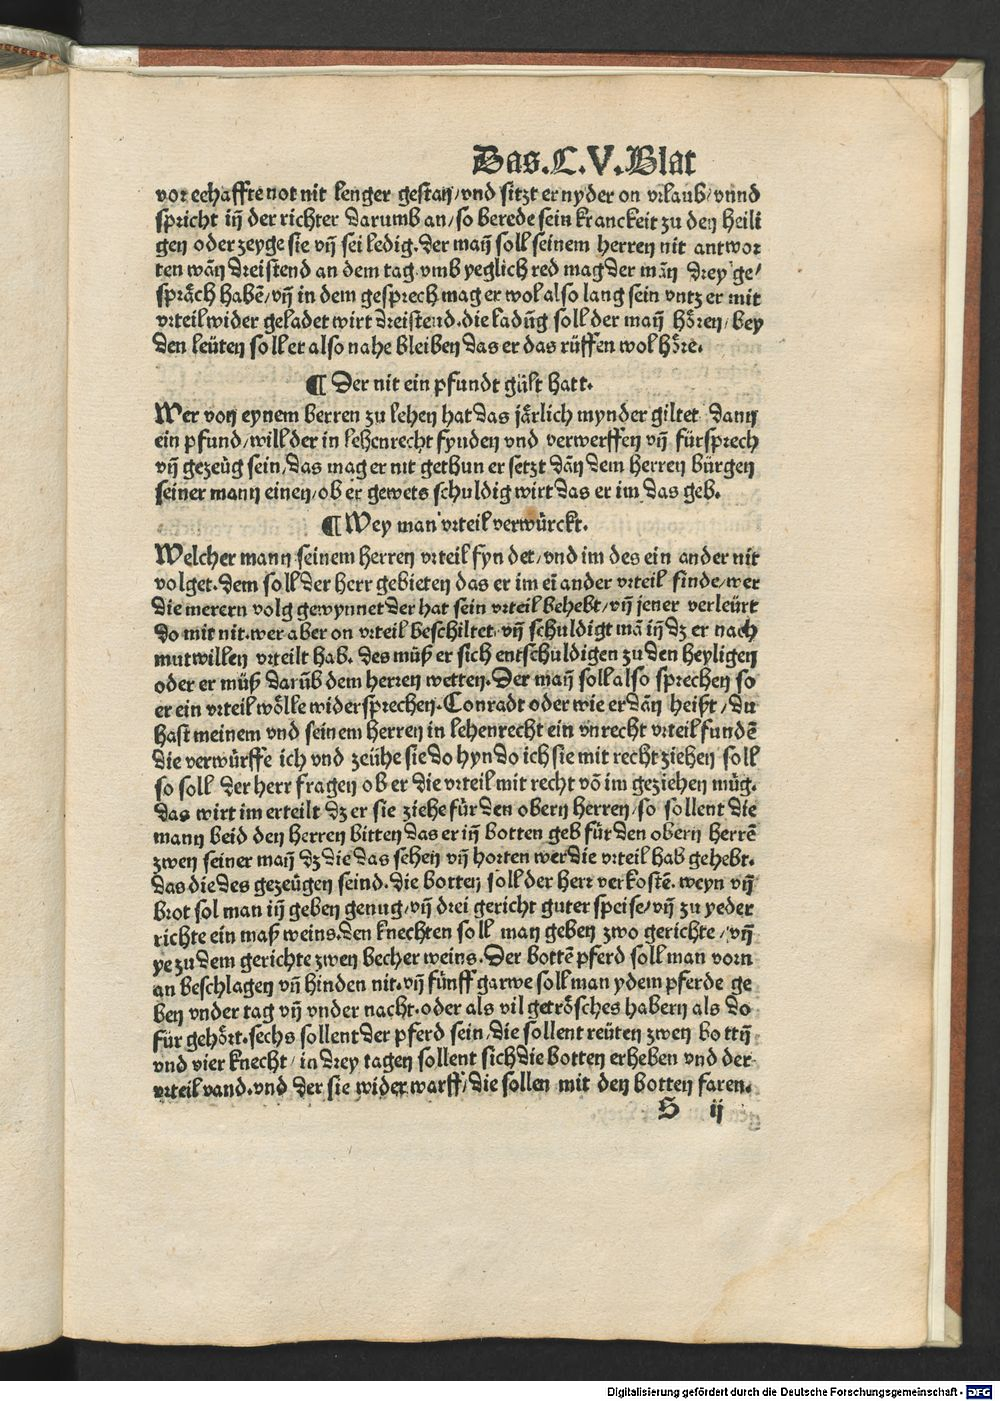 Das.C.V.Blat
vor eehaffte not nit lenger gestan/vnd sitzt er nyder on vrlaub/vnnd
spricht in̄ der richter darumb an/so berede sein kranckeit zu den heili
gen oder zeyge sie vn̄ sei ledig.der man̄ soll seinem herren nit antwor
ten wān dreistend an dem tag.vmb yeglich red mag der mān drey ge/
språch habē/vn̄ in dem gesprech mag er wol also lang sein vntz er mit
vrteil wider geladet wirt dreistend.die ladūg soll der man̄ hőren/bey
den leüten soll er also nahe bleiben das er das rüffen wol hőre.
¶ Der nit ein pfundt gült hatt.
Wer von eynem herren zu lehen hat das jårlich mynder giltet dann
ein pfund/will der in lehenrecht fynden vnd verwerffen vn̄ fürsprech
vn̄ gezeüg sein/das mag er nit gethun er setzt dān dem herren bürgen
seiner mann einen/ob er gewets schuldig wirt das er im das geb.
¶ Wey man vrteil verwürckt.
Welcher mann seinem herren vrteil fyn det/vnd im des ein ander nit
volget.dem soll der herr gebieten das er im eī ander vrteil finde/wer
die merern volg gewynnet der hat sein vrteil behebt/vn̄ jener verleürt
do mit nit.wer aber on vrteil beschiltet vn̄ schuldigt mā in̄ dz er nach
mutwillen vrteilt hab. des müß er sich entschuldigen zu den heyligen
oder er müß darūb dem herren wetten.Der man̄ soll also sprechen so
er ein vrteil wőlle widersprechen.Conradt oder wie er dān heißt/du
hast meinem vnd seinem herren in lehenrecht ein vnrecht vrteil fundē
die verwürffe ich vnd zeühe sie do hyn do ich sie mit recht ziehen soll
so soll der herr fragen ob er die vrteil mit recht vō im geziehen müg.
das wirt im erteilt dz er sie ziehe für den obern herren/so sollent die
mann beid den herren bitten das er in̄ botten geb für den obern herrē
zwen seiner man̄ dz die das sehen vn̄ horten wer die vrteil hab gehebt.
das die des gezeügen seind.die botten soll der herr verkostē.weyn vn̄
brot sol man in̄ geben genug/vn̄ drei gericht guter speise/vn̄ zu yeder
richte ein maß weins.den knechten soll man geben zwo gerichte/vn̄
ye zu dem gerichte zwen becher weins.Der bottē pferd soll man vorn
an beschlagen vn̄ hinden nit.vn̄ fünff garwe soll man ydem pferde ge
ben vnder tag vn̄ vnder nacht.oder als vil getrősches habern als do
für gehőrt.sechs sollent der pferd sein/die sollent reüten zwen bottn̄
vnd vier knecht/in drey tagen sollent sich die botten erheben vnd der
vrteil vand.vnd der sie wider warff/die sollen mit den botten faren.
S ij
Digitalisierung gefördert durch die Deutsche Forschungsgemeinschaft - DFG